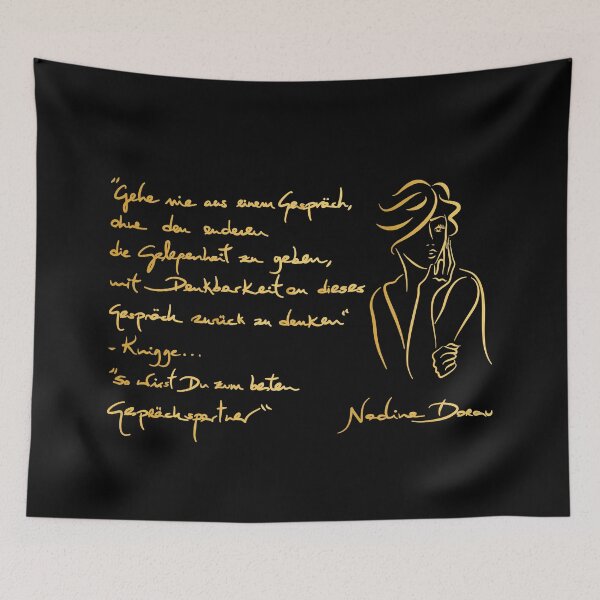 "Gehe nie aus einem Gespräch,
ohne den anderen
die Gelegenheit zu geben,
mit Dankbarkeit an dieses
Gespräch zurück zu denken"
- Knigge...
"So wirst Du zum besten
Gesprächspartner"
Nadine Dorau